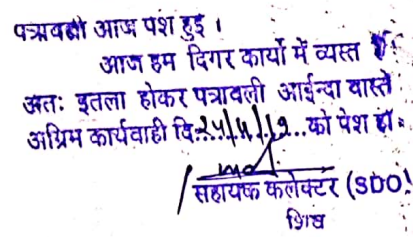 पत्रावली आज पेश हुई ।
आज हम दिगर कार्यो में व्यस्त
अतः इतला होकर पत्रावली आईन्दा वास्ते
अग्रिम कार्यवाही दि. को पेश हो
सहायक कलेक्टर (SDO)